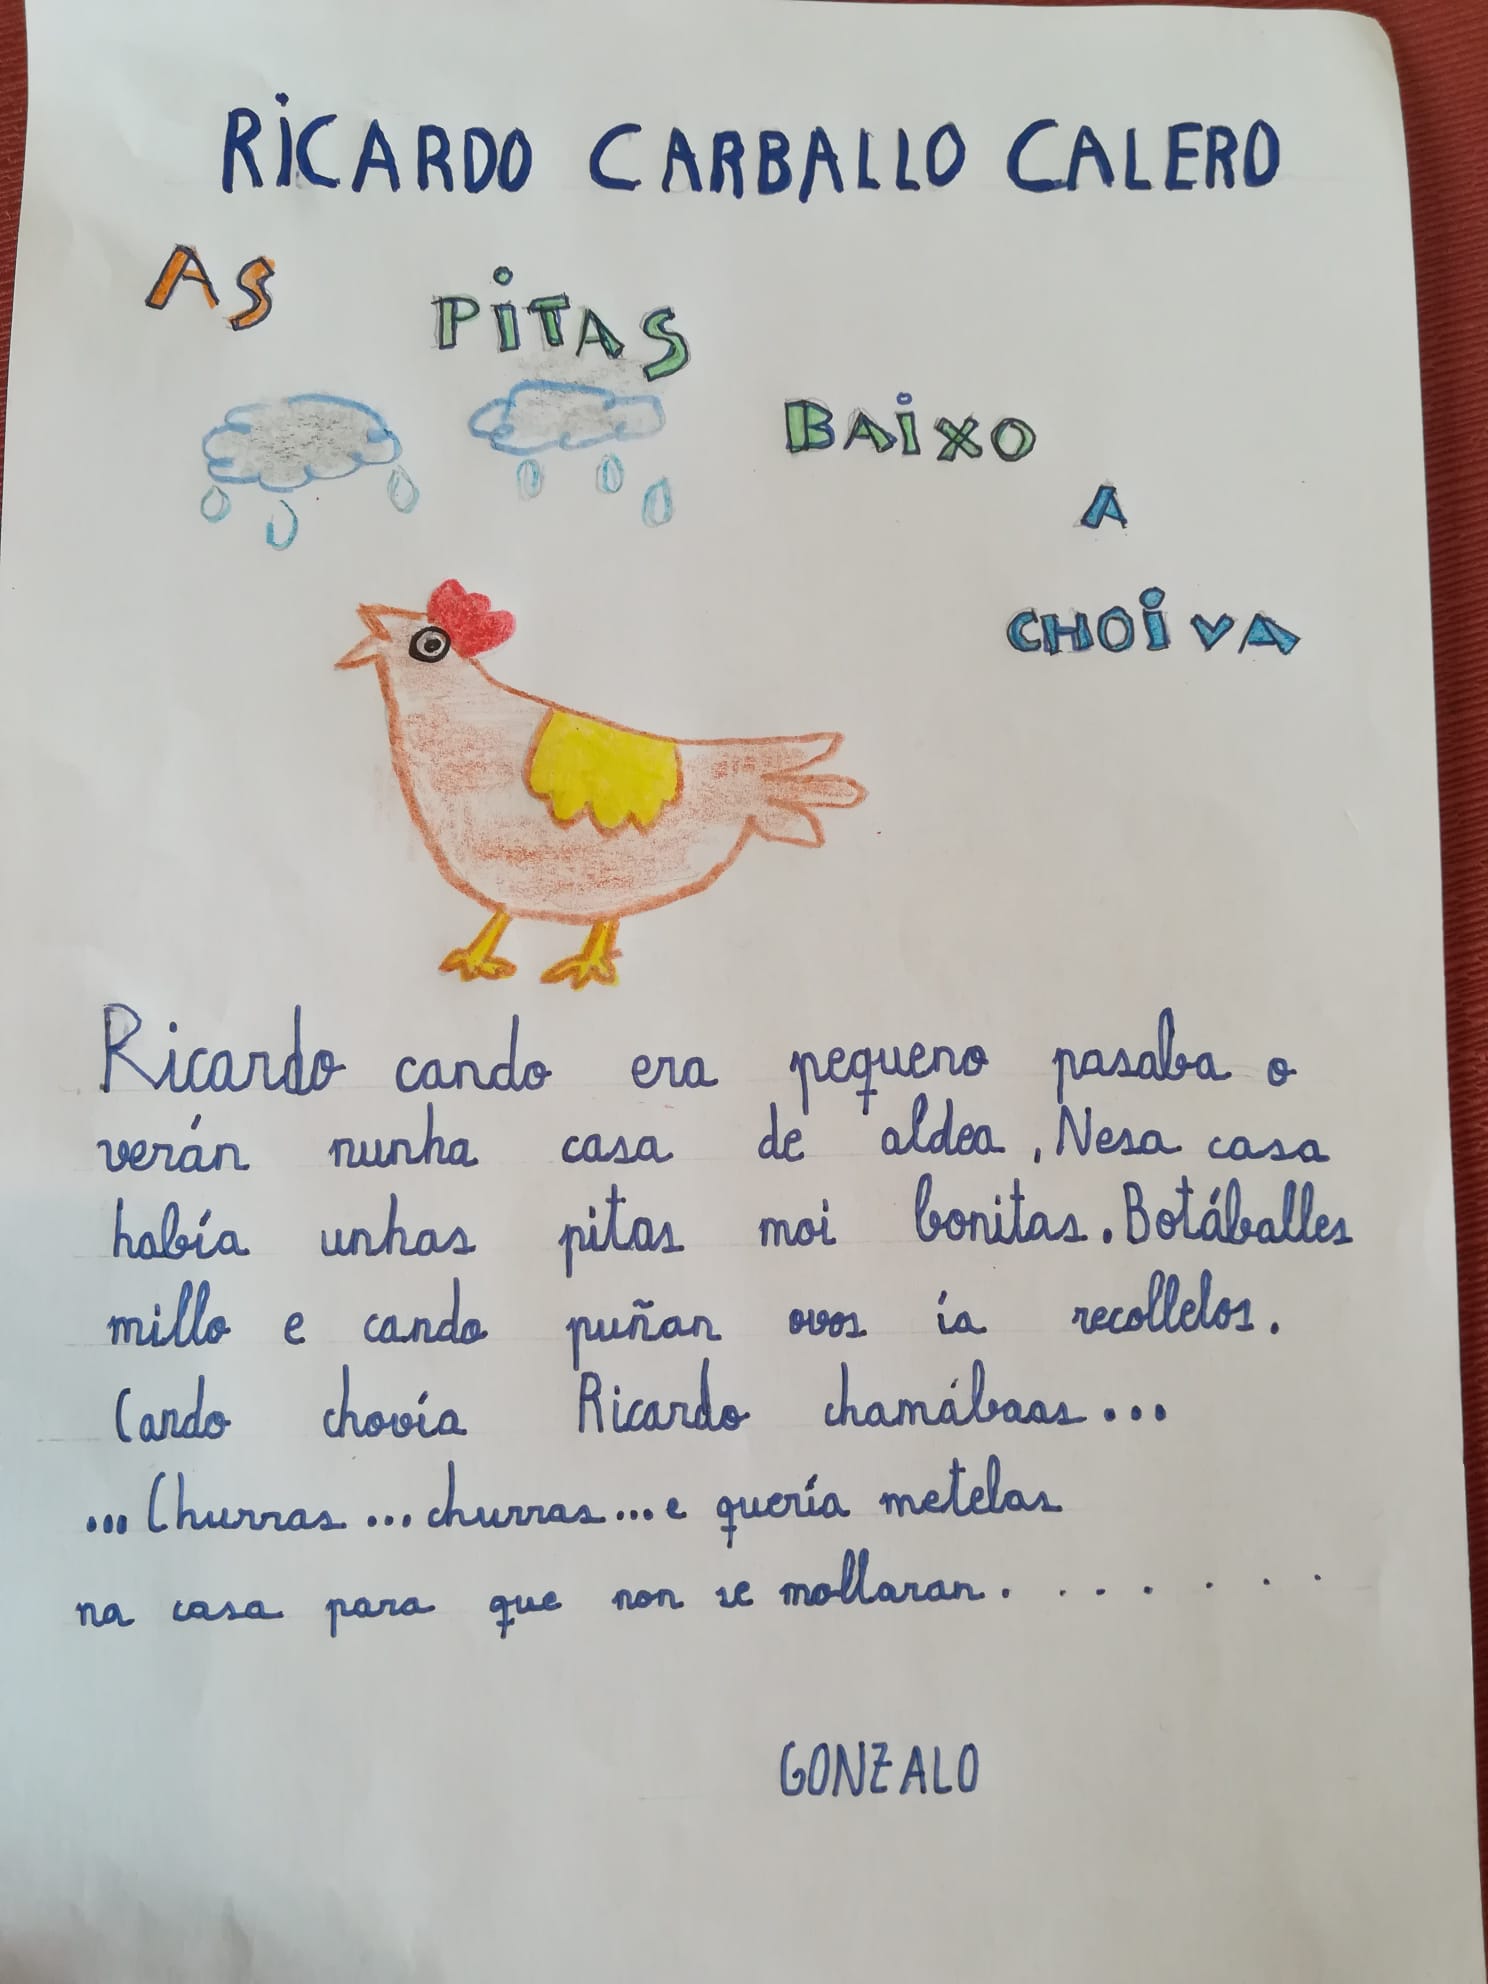 RICARDO CARBALLO CALERO
AS
PITAS
BAIXO
A
CHOIVA
Ricardo cando era pequeno pasaba o
verán nunha casa de aldea. Nesa casa
había unhas pitas moi bonitas. Botáballes
millo e cando puñan ovos ía recollelos.
Cando chovía Ricardo chamábaas...
...Churras...churras...e quería metelas
na casa para que non se mollaran. . . . . . .
GONZALO